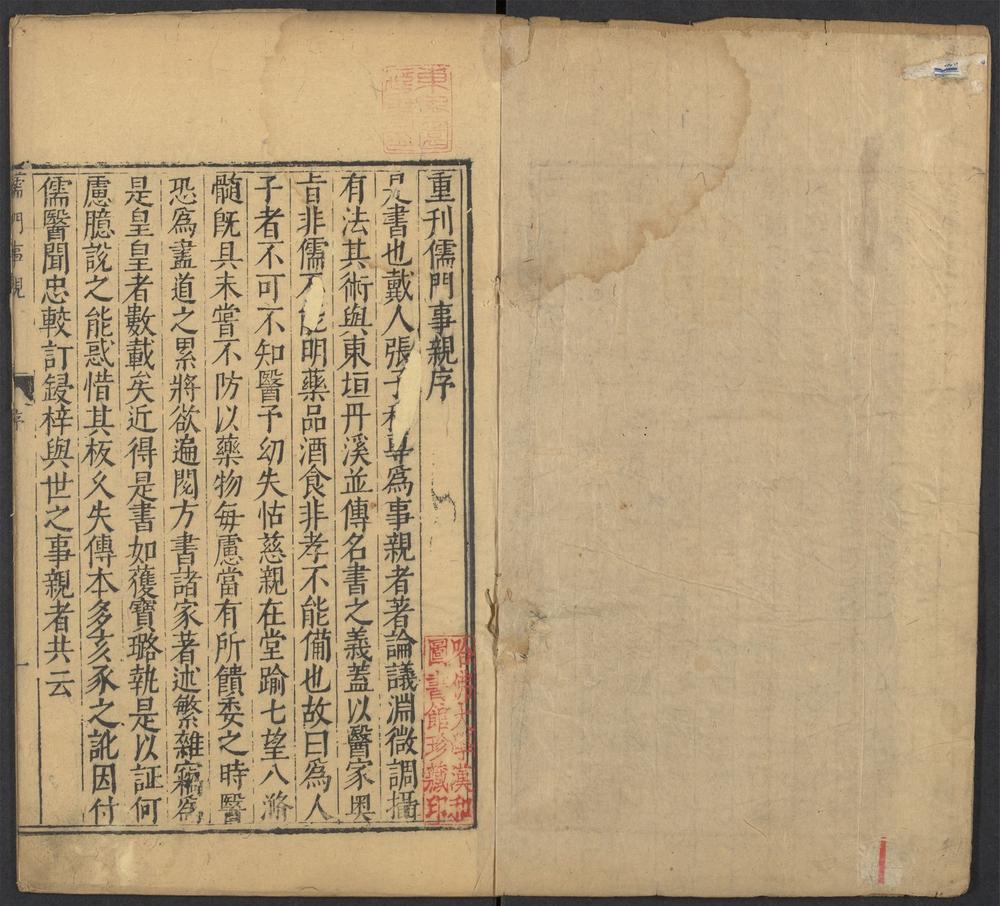 重刊儒門事親序
是書也戴人張子和專爲事親者著論議淵微調攝
有法其術與東垣丹溪並傳名書之義蓋以醫家奧
旨非儒不能明藥品酒食非孝不能備也故曰爲人
子者不可不知醫予幼失怙慈親在堂踰七望八滫
髓旣具未嘗不防以藥物每慮當有所饋委之時醫
恐爲盡道之累將欲遍閱方書諸家著述繁雜竊爲
是皇皇者數載矣近得是書如蒦寶璐執是以証何
慮臆說之能惑惜其板久失傳本多亥豕之訛因付
儒醫聞忠較訂鋟梓與世之事親者共云
儒門事親
序
一
哈佛大學漢和
圖書館珍藏印